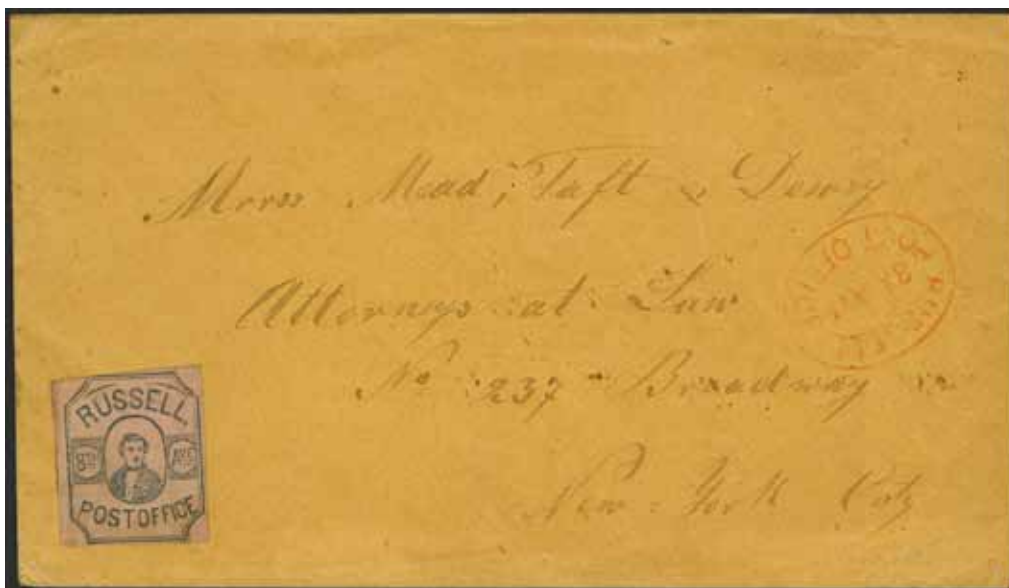 Messrs Mead, Taft & Dewey
Attorneys at Law
No 237 Broadway
New-York City
RUSSELL
8TH AVE
POST OFFICE
RUSSELL
POST OFFICE